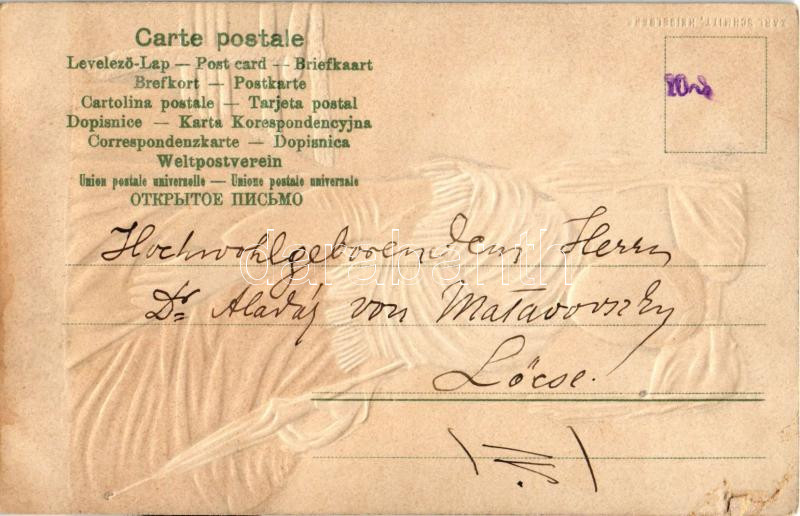 KARL SCHMITT, HEIDELBERG
Carte postale
Levelező-Lap — Post card — Briefkaart
Brefkort — Postkarte
Cartolina postale — Tarjeta postal
Dopisnice — Karta Korespondencyjna
Correspondenzkarte — Dopisnica
Weltpostverein
Union postale universelle — Unione postale universale
ОТКРЫТОЕ ПИСЬМО
Hochwohlgeboren dem Herrn
Dr Aladár von Matavovszky
Lőcse.
darabanth